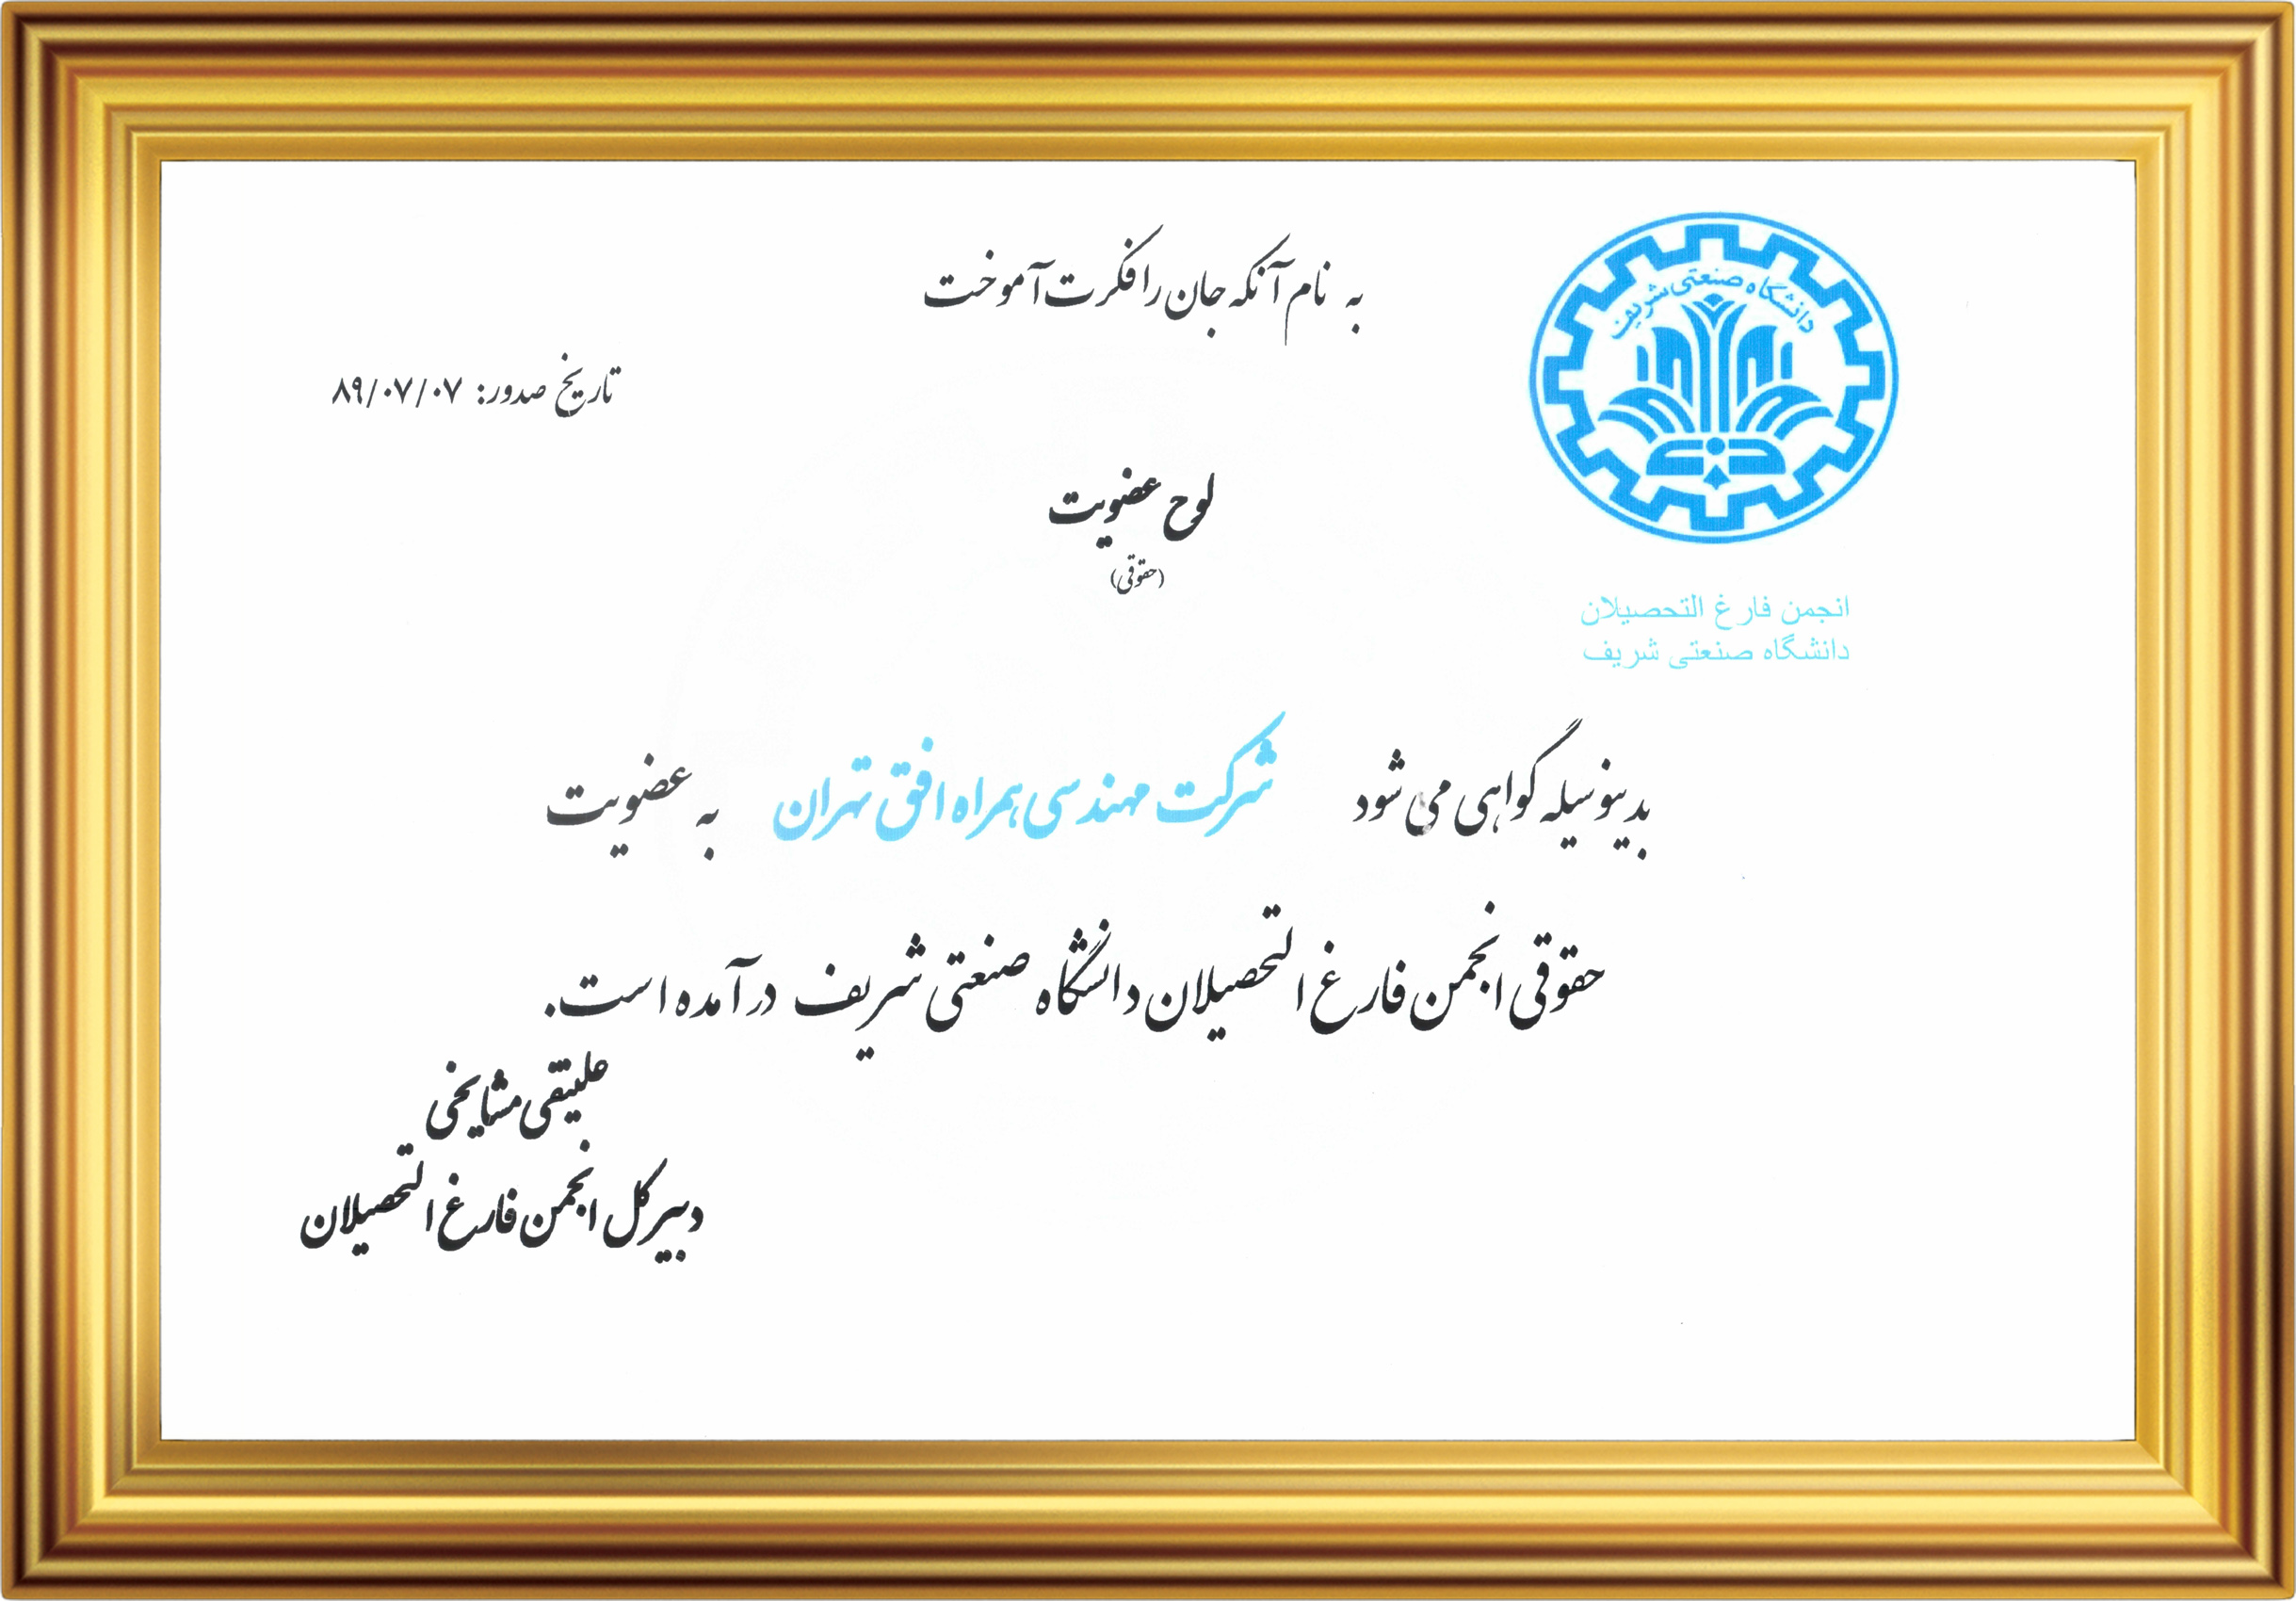 به نام آنکه جان را فکرت آموخت
دانشگاه صنعتی شریف
تاریخ صدور: ۸۹/۰۷/۰۷
لوح عضویت
(حقوقی)
انجمن فارغ التحصیلان
دانشگاه صنعتی شریف
بدینوسیله گواهی می شود شرکت مهندسی همراه افق تهران به عضویت
حقوقی انجمن فارغ التحصیلان دانشگاه صنعتی شریف درآمده است.
علینقی مشایخی
دبیر کل انجمن فارغ التحصیلان